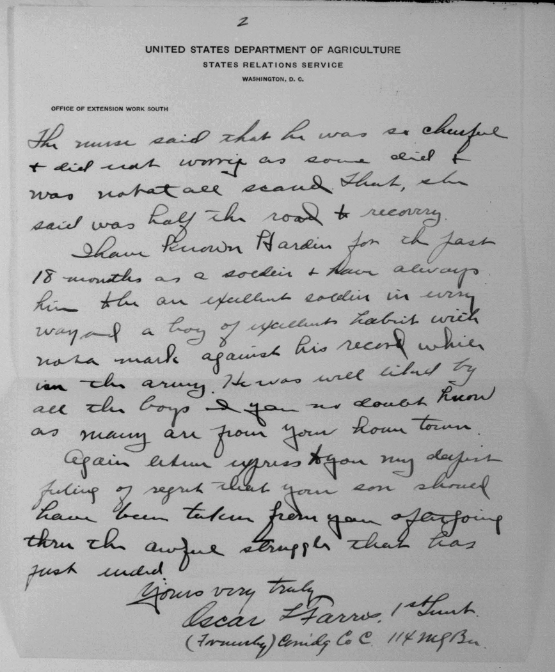 2
UNITED STATES DEPARTMENT OF AGRICULTURE
STATES RELATIONS SERVICE
WASHINGTON, D. C.
OFFICE OF EXTENSION WORK SOUTH
The nurse said that he was so cheerful
& did not worry as some did &
was not at all scared. That, she
said was half the road to recovery.
I have known Hardin for the past
18 months as a soldier & have always
him to be an excellent soldier in every
way and a boy of excellent habits with
not a mark against his record while
in the army. He was well liked by
all the boys & you no doubt know
as many are from your home town.
Again let me express to you my deepest
feeling of regret that your son should
have been taken from you after going
thru the awful struggle that has
just ended
Yours very truly
Oscar L Farris, 1st Lieut.
(Formerly) Comdg Co C. 114 MG Bn.